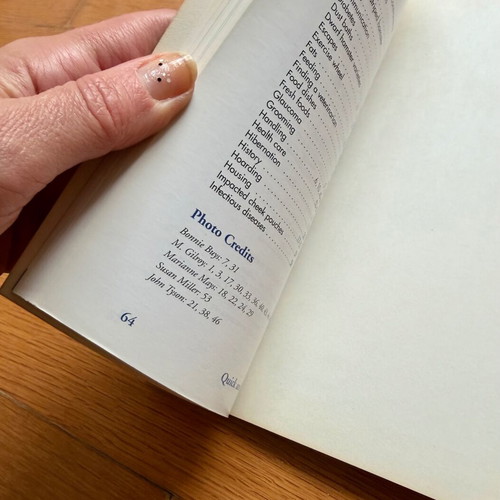 Diabetes
Dust baths
Dwarf hamster
Escapes
Exercise wheel
Fats
Feeding
Finding a veterinarian
Fresh foods
Food dishes
Glaucoma
Grooming
Handling
Health care
Hibernation
History
Hoarding
Housing
Impacted cheek pouches
Infectious diseases
Photo Credits
Bonnie Buys: 7, 31
M. Gilroy: 1, 3, 17, 30, 33, 36,
Marianne Mays: 18, 22, 24, 29
Susan Miller: 53
John Tyson: 21, 38, 46
64